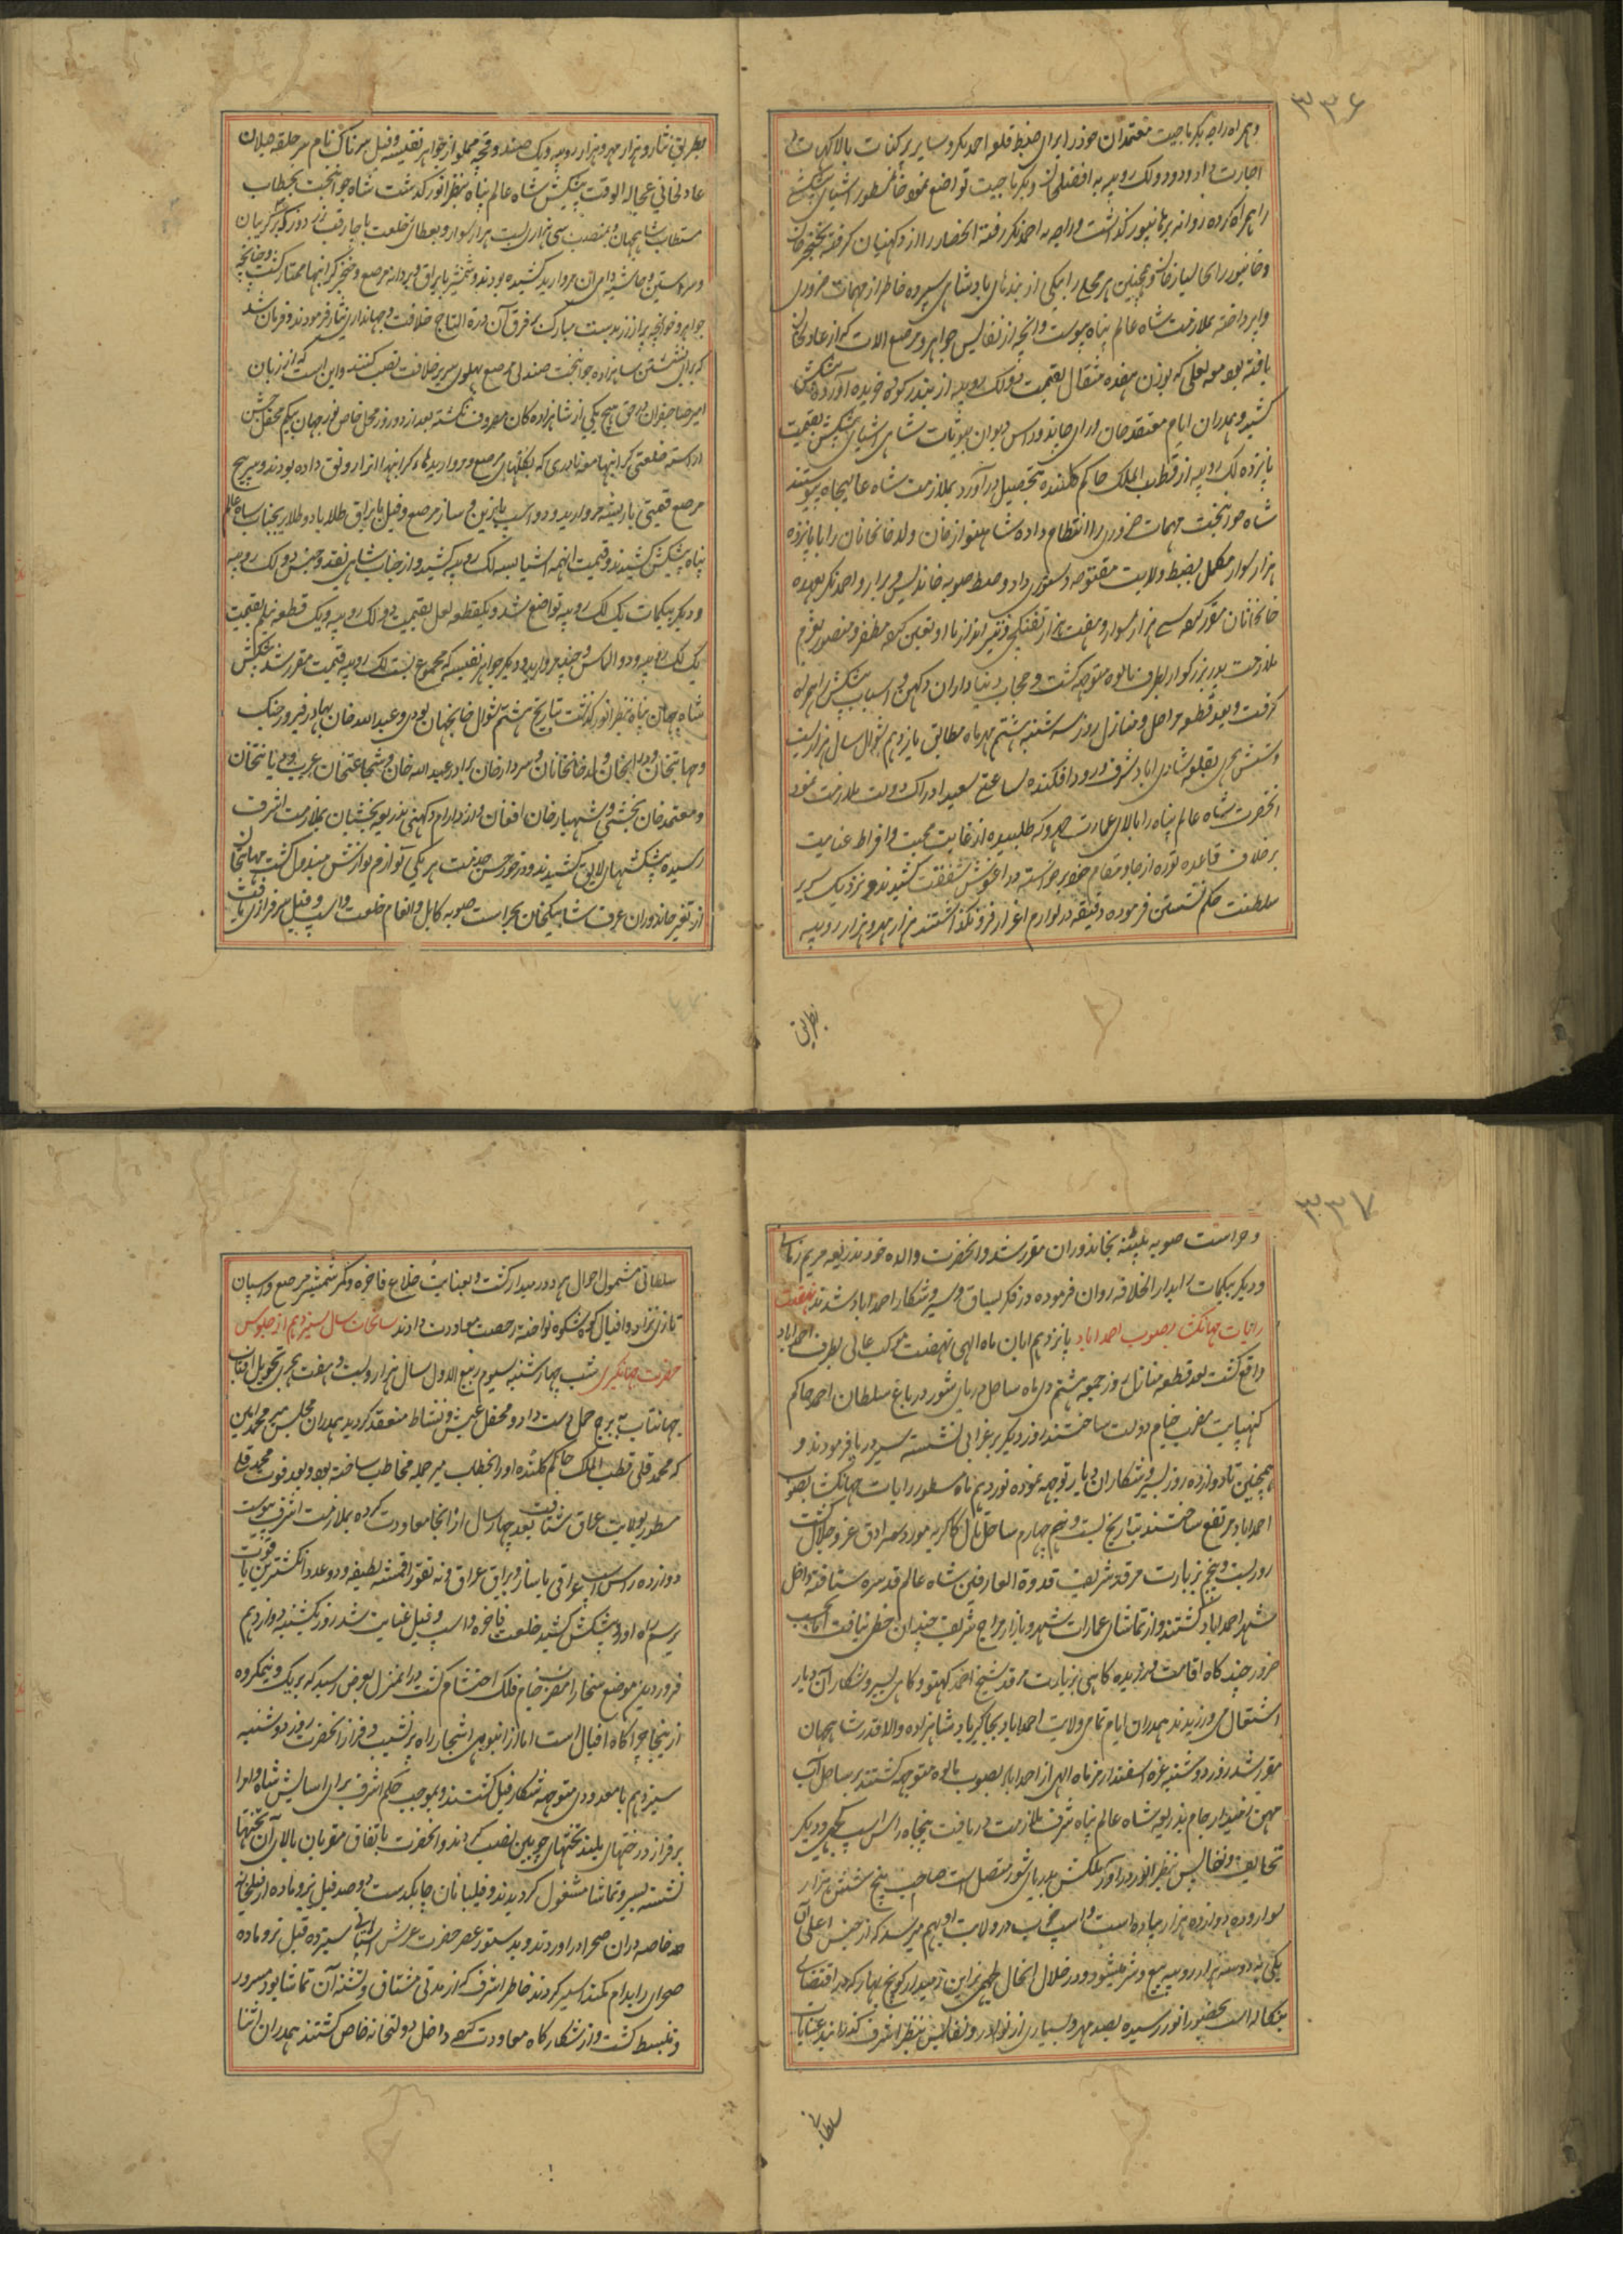 ۳۳۶
و همراه راجه بکرماجیت معتمدان خود را برای ضبط قلعه احمدنکر و سایر پرکنات بالاکهات
اجازت داد و دو لک روپیه به افضلخان و بکرماجیت تواضع نموده خان مسطور را با اشیای پیشکش
را همراه کرده روانه برهانپور کذاشت و راجه به احمدنکر رفته انحصار را از دکهنیان کرفته بخنجر خان
و جانپور را بجانسپار خان و همچنین هر محلی را بیکی از بندهای بادشاهی سپرده خاطر از مهمات ضروری
وا پرداخته بملازمت شاه عالم پناه پیوست و آنچه از نفایس جواهر و مرصع الات که از عادلخان
یافته بود مع لعلی که بوزن هفده مثقال بقیمت دو لک روپیه از بندر کووه خریده آورده پیشکش
کشید و همدران ایام معتقد خان و رای جاندوداس دیوان بیوتات شاهی اشیای پیشکش بقیمت
پانزده لک روپیه از قطب الملک حاکم کلکنده بتحصیل در آورده بملازمت شاه عالیجاه پیوستند
شاه جوانبخت مهمات ضروری را انتظام داده شاهنواز خان ولد خانخانان را با پانزده
هزار سوار مکمل بضبط ولایت مفتوحه دستوری داد و ضبط صوبه خاندیس و برار و احمدنکر بعهده
خانخانان مقرر کرده سی هزار سوار و هفت هزار تفنکچی و تیرانداز با او تعین کرده مظفر و منصور بعزم
ملازمت پدر بزرکوار بطرف مالوه متوجه کشت و حجاب دنیاداران دکهن و اسباب پیشکش را همراه
کرفت و بعد قطع مراحل و منازل روز سه شنبه هشتم مهر ماه مطابق یازدهم شوال سال هزار و بیست
و شش هجری بقلعه شادی اباد شرف ورود افکنده بساعتی سعید ادراک دولت ملازمت نمود
انحضرت شاه عالم پناه را بالای عمارت جهروکه طلبیده از غایت محبت و افراط عنایت
برخلاف قاعده توره از جا و مقام خود برخواسته در اغوش شفقت کشیدند و نزدیک سریر
سلطنت حکم نشستن فرموده دقیقه در لوازم اعزاز فرو نکذاشتند هزار مهر و هزار روپیه
بطریق
بطریق نثار و هزار مهر و هزار روپیه و یک صندوقچه مملو از جواهر نفیسه و فیل سرناک نام سر حلقه فیلان
عادلخانی عجالة الوقت پیشکش شاه عالم پناه بنظر انور کذشت شاه جوانبخت بخطاب
مستطاب شاهجهان و بمنصب سی هزاری بیست هزار سوار و بعطای خلعت با چارقب زردوز که بر کریبان
و سر استین و حاشیه دامن ان مروارید کشیده بودند و شمشیر با یراق و پردله مرصع و خنجر کرانبها ممتاز کشت و خوانچه
جواهر و خوانچه پر از زر بدست مبارک بر فرق آن درة التاج خلافت و جهانداری نثار فرمودند و فرمان شد
که برای نشستن شاهزاده جوانبخت صندلی مرصع پهلوی سریر خلافت نصب کنند و این ایست که از زمان
امیر صاحبقران در حق هیچ یکی از شاهزاده کان معروف نکشته بعد از دو روز محل خاص نورجهان بیکم محفل جشن
اراسته خلعتی کرانبها مع نادری که بکلهای مرصع و مروارید های کرانبها انرا رونق داده بودند و سرپیچ
مرصع قیمتی با ریشه مروارید و دو اسپ با زین و ساز مرصع و فیل با یراق طلا با دو طلا بجناب شاه عالم
پناه پیشکش کشیدند و قیمت اینهمه اشیا بسه لک روپیه کشید و از جناب شاهی نقد و جنس دو لک روپیه
و دیکر بیکمات یک لک روپیه تواضع شد و یکقطعه لعل بقیمت دو لک روپیه و یک قطعه نیلم بقیمت
یک لک روپیه و دو الماس و چند مروارید و دیکر جواهر نفیسه که مجموع بیست لک روپیه قیمت مقرر شد پیشکش
شاه جهان پناه بنظر انور کذشت بتاریخ هشتم شوال خانجهان لودی و عبدالله خان بهادر فیروز جنک
و مهابتخان و دارابخان ولد خانخانان و سردار خان برادر عبدالله خان و شجاعتخان عرب و دیانتخان
و معتمد خان بخشی و شهباز خان افغان و اودیرام دکهنی بذریعه بخشیان بملازمت اشرف
رسیده پیشکشهای لایق کشیدند و درخور حسن خدمت هر یکی آوازم نوازش مبذول کشت مهابتخان
از تغیر خاندوران عرف شاهبیکخان بحراست صوبه کابل و انعام خلعت و اسپ و فیل سرفرازی یافت
۳۳۷
و حراست صوبه پتنه بخاندوران مقرر شد و انحضرت والده خود بذریعه مریم زمانی
و دیکر بیکمات را بدار الخلافه روان فرموده در فکر لیساق و سیر و شکار احمداباد شدند نهضت
رایات جهانکشا بصوب احمداباد پانزدهم ابان ماه الهی نهضت موکب عالی بطرف احمداباد
واقع کشت بعد قطع منازل روز جمعه هشتم دی ماه ساحل دریای شور در باغ سلطان احمد حاکم
کنهبایت مضرب خیام دولت ساختند روز دیکر بر غرابی نشسته سیر دریا فرمودند و
همچنین تا دوازده روز بسیر و شکار ان دیار توجه نموده نوزدهم ماه مسطور رایات جهانکشا بصوب
احمداباد مرتفع ساختند بتاریخ بیست و چهارم ساحل تال کاکریه مورد سرادق عز و جلال کشت
روز بیست و پنجم بزیارت مرقد شریف قدوة العارفین شاه عالم قدس سره شتافته داخل
شهر احمداباد کشتند و از تماشای عمارات شهر و بازار مزاج شریف چندان حظی نیافت اما بحسب
ضرور چند کاه اقامت ورزیده کاهی بزیارت مرقد شیخ احمد کهتو و کاهی بسیر و شکار آن دیار
اشتغال می ورزیدند همدران ایام تمامی ولایت احمداباد بجاکیر پادشاهزاده والا قدر شاهجهان
مقرر شد روز دوشنبه غره اسفندارمز ماه الهی از احمداباد بصوب مالوه متوجه کشتند بر ساحل آب
مهین زمیندار جام بذریعه شاه عالم پناه شرف ملازمت دریافت پنجاه راس اسپ کچهی و دیکر
تحایف و نفایس بنظر انور در اورد ملکش بدریای شور متصل است صاحب پنج شش هزار
سوار و ده دوازده هزار پیاده است و اسپ خوب در ولایت او بهم میرسد که از جنس اعلی آن
یکی به دو سه هزار روپیه بیع و شری میشود و در خلال انحال لچهمی نراین زمیندار کوچ بهار که در اقتضای
بنکاله است بحضور انور رسیده پانصد مهر و بسیاری از نوادر و نفایس بنظر اشرف کذرانید عنایات
سلطانی
سلطانی مشمول احوال هر دو زمیندار کشت و بعنایت خلاع فاخره و کمر شمشیر مرصع و اسپان
تازی نژاد و افیال کوه شکوه نواخته رخصت معاودت دادند سانحات سال سیزدهم از جلوس
حضرت جهانکیری شب چهارشنبه سیوم ربیع الاول سال هزار و بیست و هفت هجری تحویل افتاب
جهانتاب به برج حمل دست داد و محفل عیش و نشاط منعقد کردید همدران مجلس میر محمد امین
که محمد قلی قطب الملک حاکم کلکنده او را بخطاب میر جمله مخاطب ساخته بود و بعد فوت محمد قلی
مسطور بولایت عراق شتافت بعد چهار سال از انجا معاودت کرده بملازمت اشرف پیوست
دوازده راس اسپ عراقی با ساز و یراق عراق و نه تقوز اقمشه لطیفه و دو عدد انکشترین یاقوت
برسم راه اورد پیشکش کشید خلعت فاخره و اسپ و فیل عنایت شد روز یکشنبه دوازدهم
فروردین موضع سنجارا مضرب خیام فلک احتشام کشت در انمنزل بعرض رسید که بر یک و نیمکروه
ازینجا چراکاه افیال است اما از انبوهی اشجار راه پر نشیب و فراز انحضرت روز دوشنبه
سیزدهم با معدودی متوجه شکار فیل کشتند و بموجب حکم اشرف برای اسایش شاه والا
بر فراز درختهای بلند تختهای چوبین نصب کردند و انحضرت باتفاق مقربان بالای آن تختها
نشسته بسیر و تماشا مشغول کردیدند و فیلبانان چابکدست دو صد فیل نر و ماده از فیلخانه
خاصه در ان صحرا در اوردند و بدستور عصر حضرت عرش اشیانی سیزده فیل نر و ماده
صحرای را بدام کمند اسیر کردند خاطر اشرف که از مدتی مشتاق و تشنه آن تماشا بود مسرور
و منبسط کشت و از شکار کاه معاودت کرده داخل دولتخانه خاص کشتند همدران اثنا